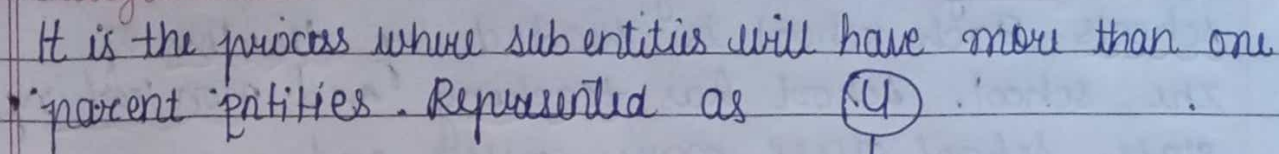 It is the process where sub entities will have more than one
parent entities. Represented as U .